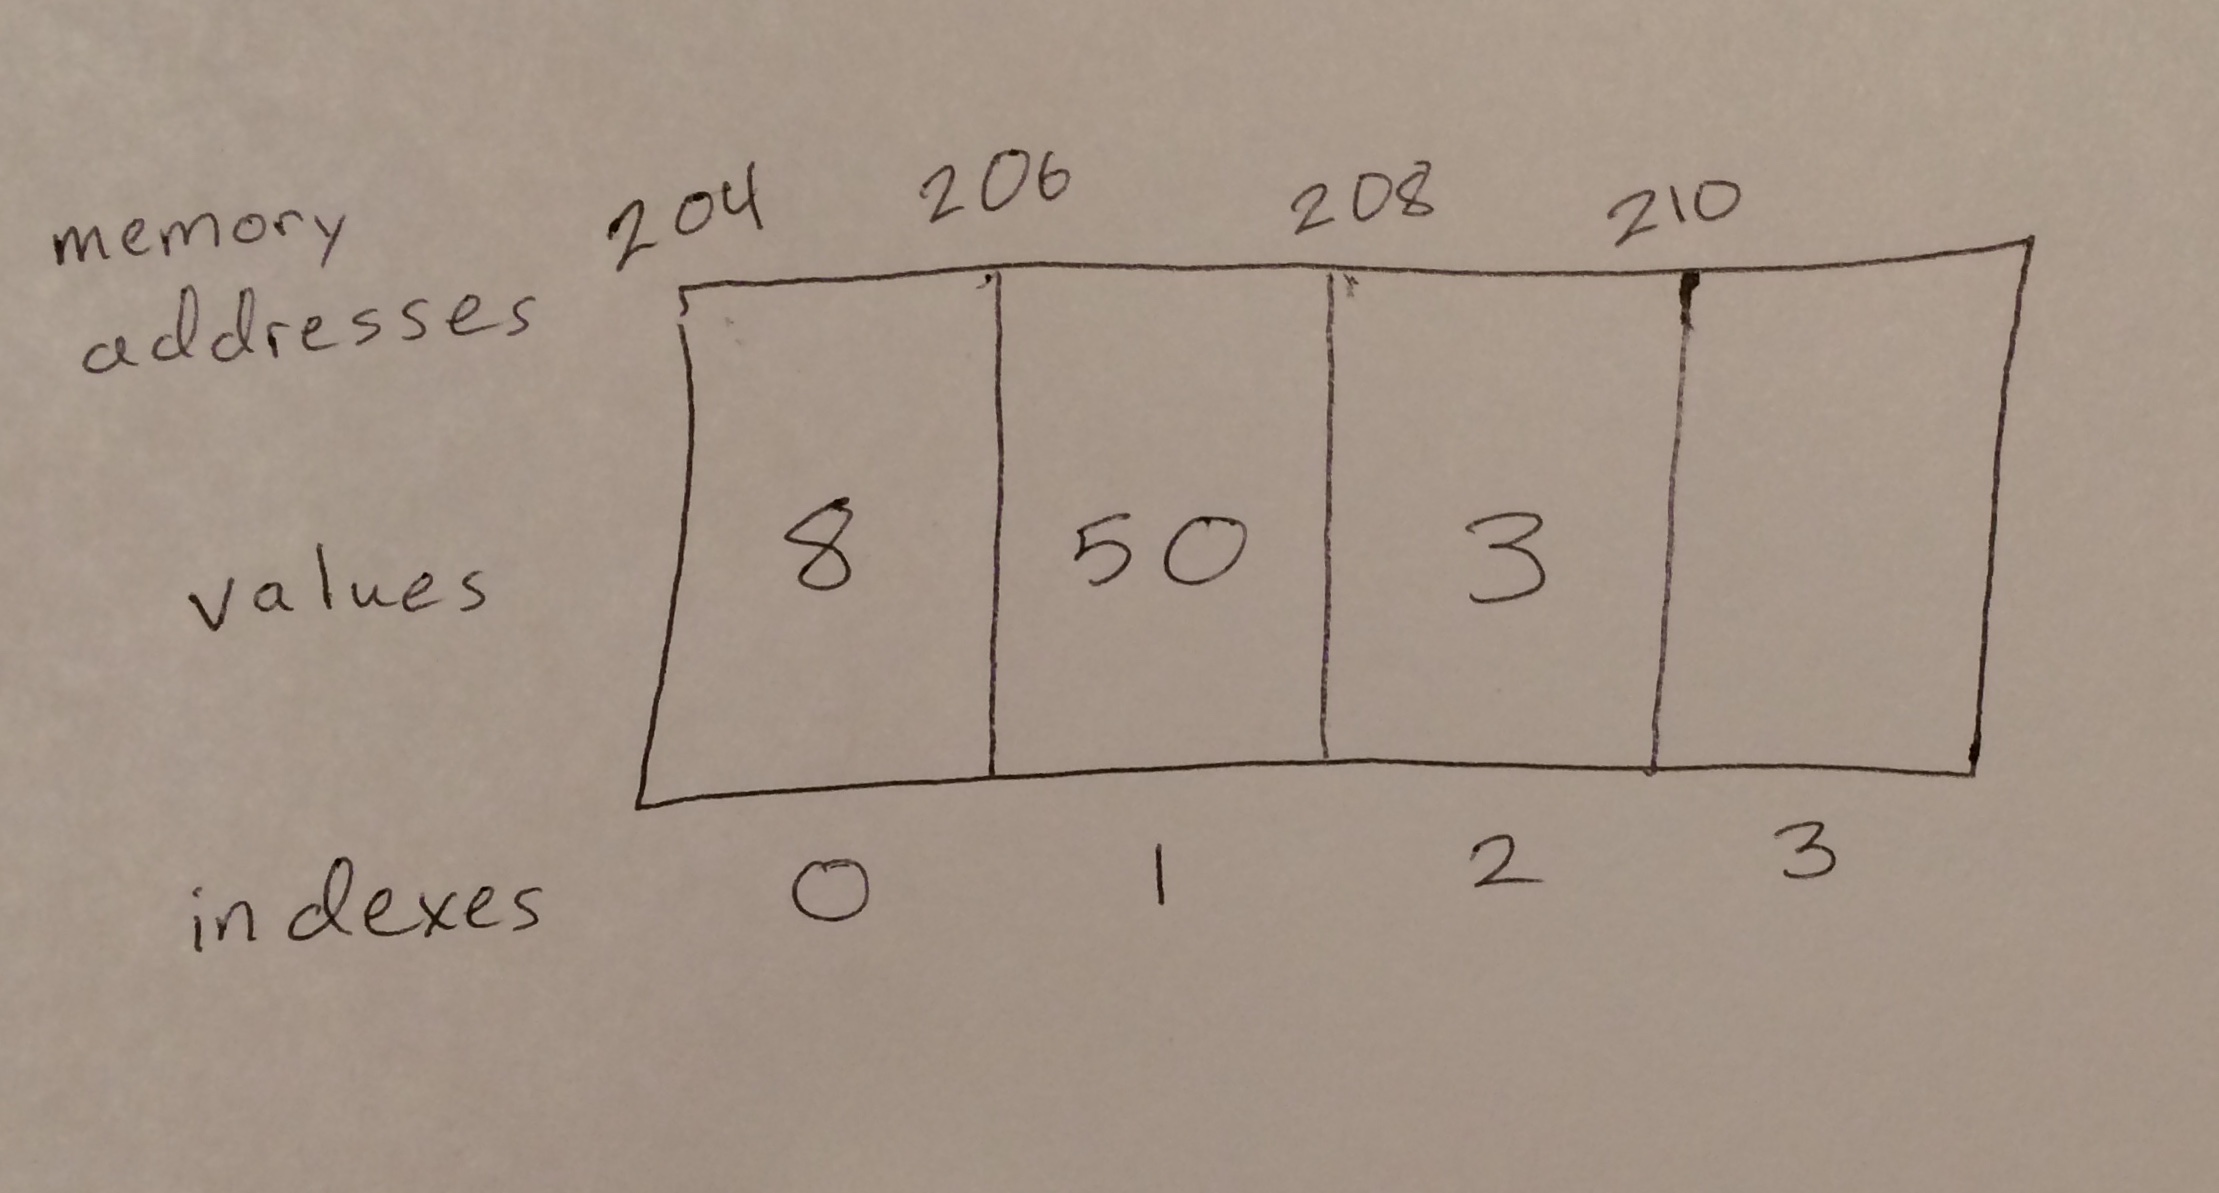 memory addresses 204 206 208 210
values 8 50 3
indexes 0 1 2 3